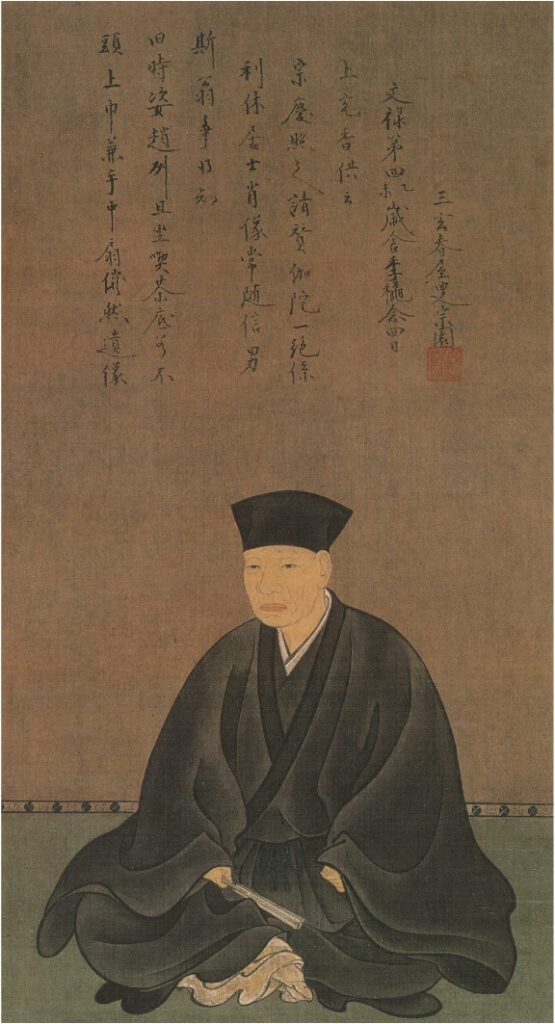 頭上巾兼手中扇儼然遺像
旧時姿趙州且坐喫茶底若不
斯翁争得知
利休居士肖像常随信男
宗慶照之請賛伽陀一絶係
上充香供云
文禄第四乙未歳舎季龝念四日
三玄春屋叟宗園